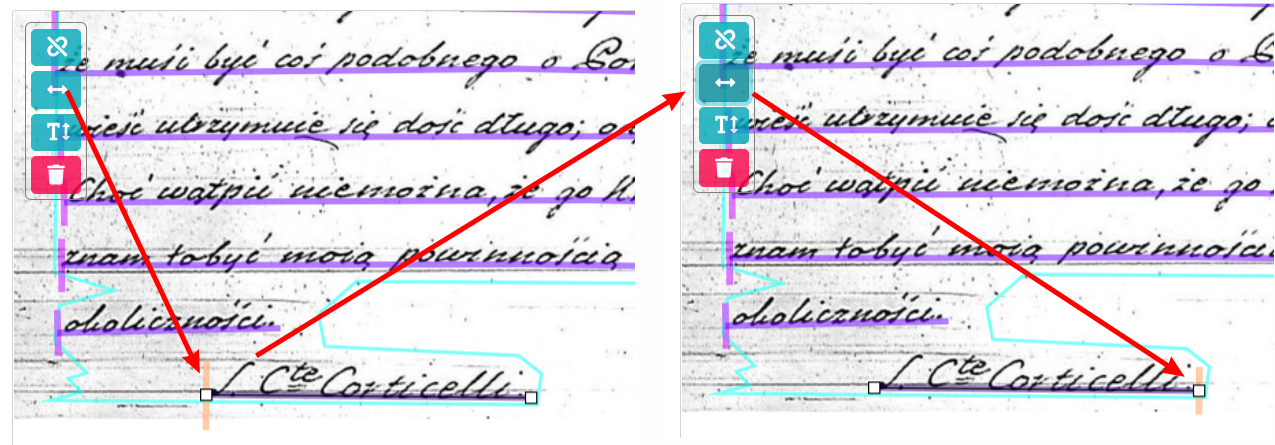 że muśi być coś podobnego o
wieść utrzymuie się dość długo; o
Choć wątpić niemożna, że go
znam tobyć moią powinnością
okoliczności.
Cte Corticelli.
że muśi być coś podobnego o
wieść utrzymuie się dość długo;
Choć wątpić niemożna, że go
znam tobyć moią
okoliczności.
Cte Corticelli.